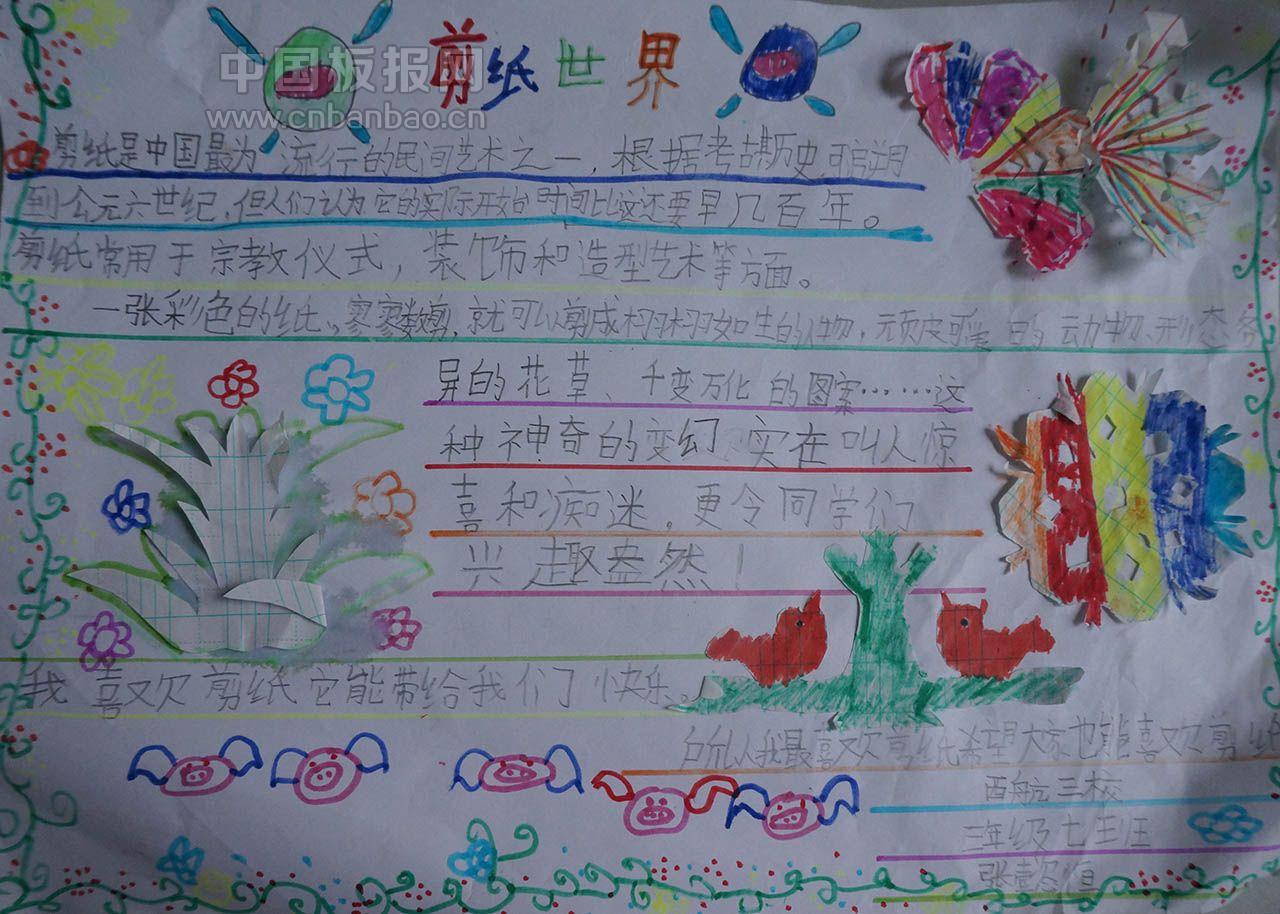 剪纸世界
中国板报网
www.cnbanbao.cn
剪纸是中国最为流行的民间艺术之一,根据考古其历史可追朔
到公元六世纪,但人们认为它的实际开始时间比这还要早几百年。
剪纸常用于宗教仪式,装饰和造型艺术等方面。
一张彩色的纸,寥寥数剪,就可以剪成栩栩如生的人物,顽皮可爱的动物、形态各
异的花草、千变万化的图案……这
种神奇的变幻,实在叫人惊
喜和痴迷,更令同学们
兴趣盎然!
我喜欢剪纸它能带给我们快乐。
所以我最喜欢剪纸希望大家也能喜欢剪纸
西航三校
三年级七班
张